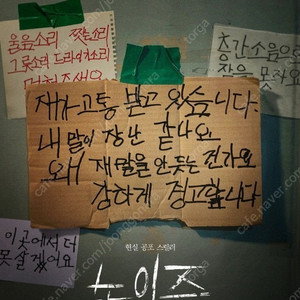 울음소리 짖는소리
그릇소리 드라이소리
층간소음으로
잠을 못자요
제가 고통 받고 있습니다.
내 말이 장난 같나요
왜 제 말을 안듣는 건가요
강하게 경고합니다
이곳에서 더
못 살겠어요
현실 공포 스릴러
노이즈